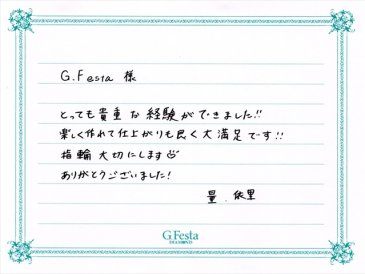 G.Festa 様
とっても貴重な経験ができました!!
楽しく作れて仕上がりも良く大満足です!!
指輪大切にします
ありがとうございました!
量.依里
G.Festa
DIAMOND